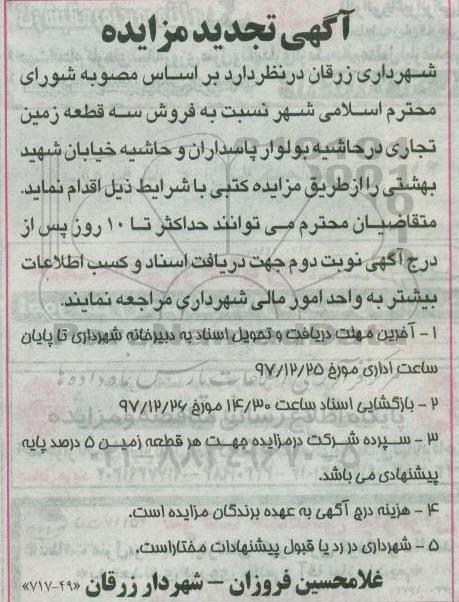 آگهی تجدید مزایده
شهرداری زرقان درنظردارد بر اساس مصوبه شورای
محترم اسلامی شهر نسبت به فروش سه قطعه زمین
تجاری درحاشیه بولوار پاسداران و حاشیه خیابان شهید
بهشتی را ازطریق مزایده کتبی با شرایط ذیل اقدام نماید.
متقاضیان محترم می توانند حداکثر تا ۱۰ روز پس از
درج آگهی نوبت دوم جهت دریافت اسناد و کسب اطلاعات
بیشتر به واحد امور مالی شهرداری مراجعه نمایند.
۱- آخرین مهلت دریافت و تحویل اسناد به دبیرخانه شهرداری تا پایان
ساعت اداری مورخ ۹۷/۱۲/۲۵
۲- بازگشایی اسناد ساعت ۱۴/۳۰ مورخ ۹۷/۱۲/۲۶
۳- سپرده شرکت درمزایده جهت هر قطعه زمین ۵ درصد پایه
پیشنهادی می باشد.
۴- هزینه درج آگهی به عهده برندگان مزایده است.
۵- شهرداری در رد یا قبول پیشنهادات مختاراست.
غلامحسین فروزان - شهردار زرقان «۴۹-۷۱۷»